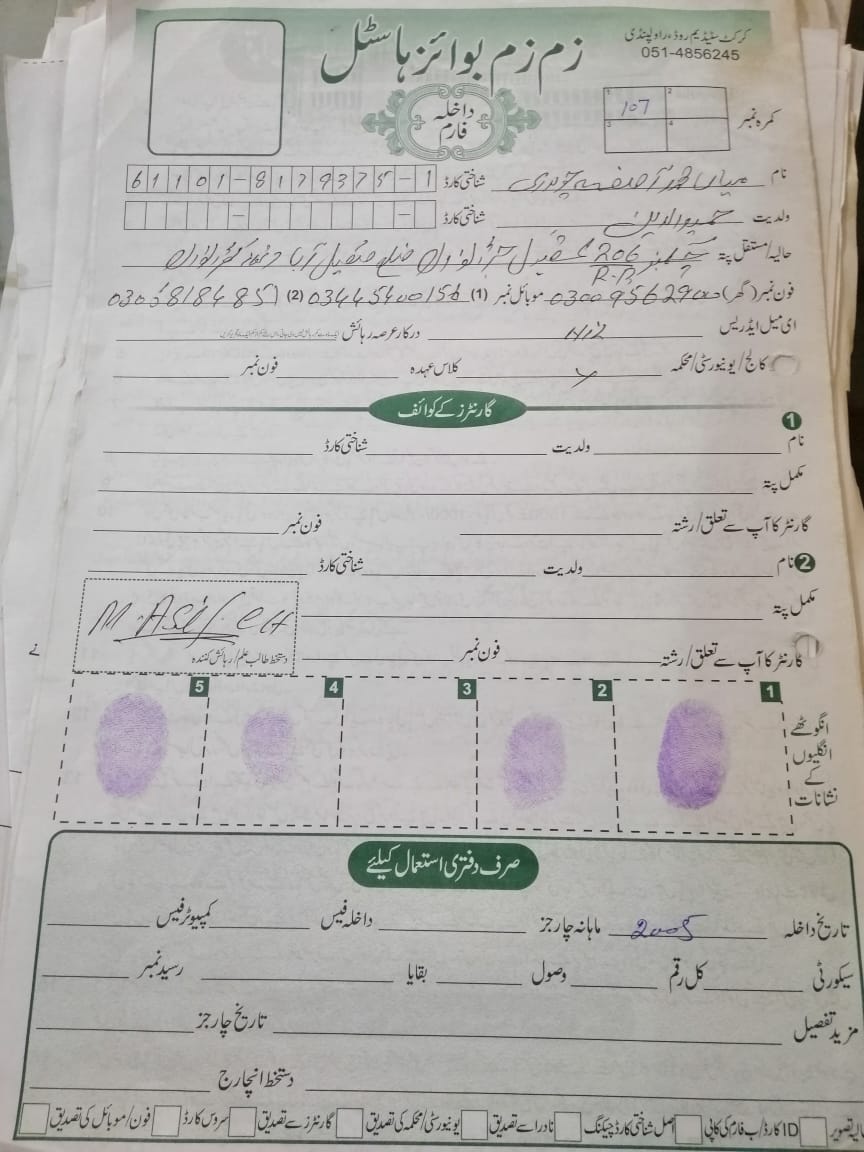 کرکٹ سٹیڈیم روڈ، راولپنڈی
051-4856245
زم زم بوائز ہاسٹل
داخلہ
فارم
کمرہ نمبر 1 107 2 3 4
نام شناختی کارڈ 61101-8179375-1
ولدیت شناختی کارڈ
حالیہ/مستقل پتہ 206
R.P
فون نمبر (گھر) موبائل نمبر (1) (2)
ای میل ایڈریس درکار عرصہ رہائش
کالج/یونیورسٹی/محکمہ کلاس عہدہ فون نمبر
گارنٹرز کے کوائف
1
نام ولدیت شناختی کارڈ
مکمل پتہ
گارنٹر کا آپ سے تعلق/رشتہ فون نمبر
2 نام ولدیت شناختی کارڈ
مکمل پتہ
M. Asif CH
گارنٹر کا آپ سے تعلق/رشتہ فون نمبر
دستخط طالب علم/رہائش کنندہ
1 2 3 4 5
انگوٹھے
انگلیوں
کے
نشانات
صرف دفتری استعمال کیلئے
تاریخ داخلہ 2005 ماہانہ چارجز داخلہ فیس کمپیوٹر فیس
سیکورٹی کل رقم وصول بقایا رسید نمبر
مزید تفصیل تاریخ چارجز
دستخط انچارج
تصویر ID کارڈ/ب فارم کی کاپی اصل شناختی کارڈ چیکنگ نادرا سے تصدیق یونیورسٹی/محکمہ کی تصدیق گارنٹرز سے تصدیق سروس کارڈ فون/موبائل کی تصدیق